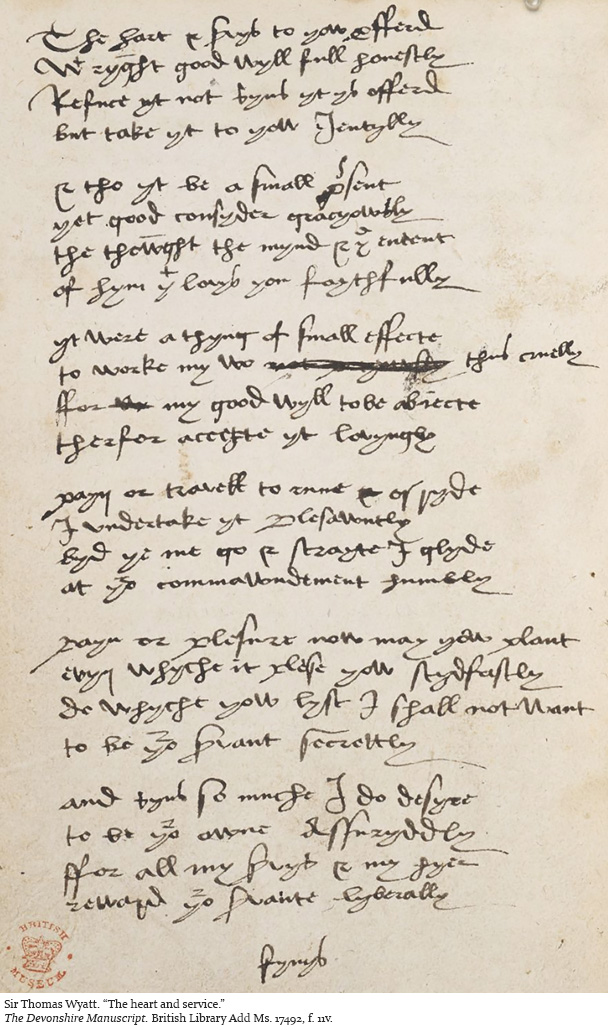 The hart & srvys to yow offerd
Wt ryght good wyll full honestly
Refuce yt not syns yt ys offerd
but take yt to yow Jentylly
& tho yt be a small prsent
yet good consyder gracyowsly
the thowght the mynd & ye entent
of hym yt lovys you faythfully
yt were a thyng of small effecte
to worke my wo thus cruelly
ffor my good wyll to be abiecte
therfor accepte yt lovyngly
payn or travell to rune or ryde
I undertake yt plesawntly
byd ye me go & strayte I glyde
at yor commawndement humbly
payn or plesure now may yow plant
evyn whyche it plese yow stydfastly
do whyche yow lyst I shall not want
to be yor srvant secrettly
and syns so muche I do desyre
to be yor owne assuryddly
ffor all my srvys & my hyer
reward yor srvante lyberally
fynys
BRITISH
MUSEUM
Sir Thomas Wyatt. “The heart and service.”
The Devonshire Manuscript. British Library Add Ms. 17492, f. 11v.